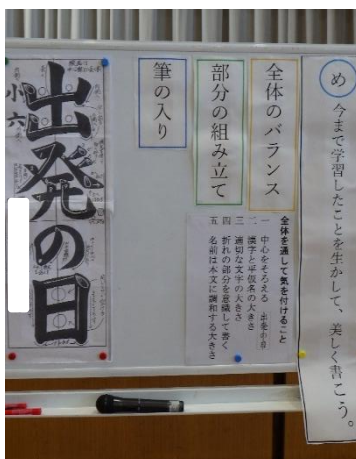 め 今まで学習したことを生かして、美しく書こう。
全体のバランス
部分の組み立て
筆の入り
全体を通して気を付けること
一 中心をそろえる 出発の日
二 漢字と平仮名の大きさ
三 適切な文字の大きさ
四 折れの部分を意識して書く
五 名前は本文に調和する大きさ
出発の日
小六